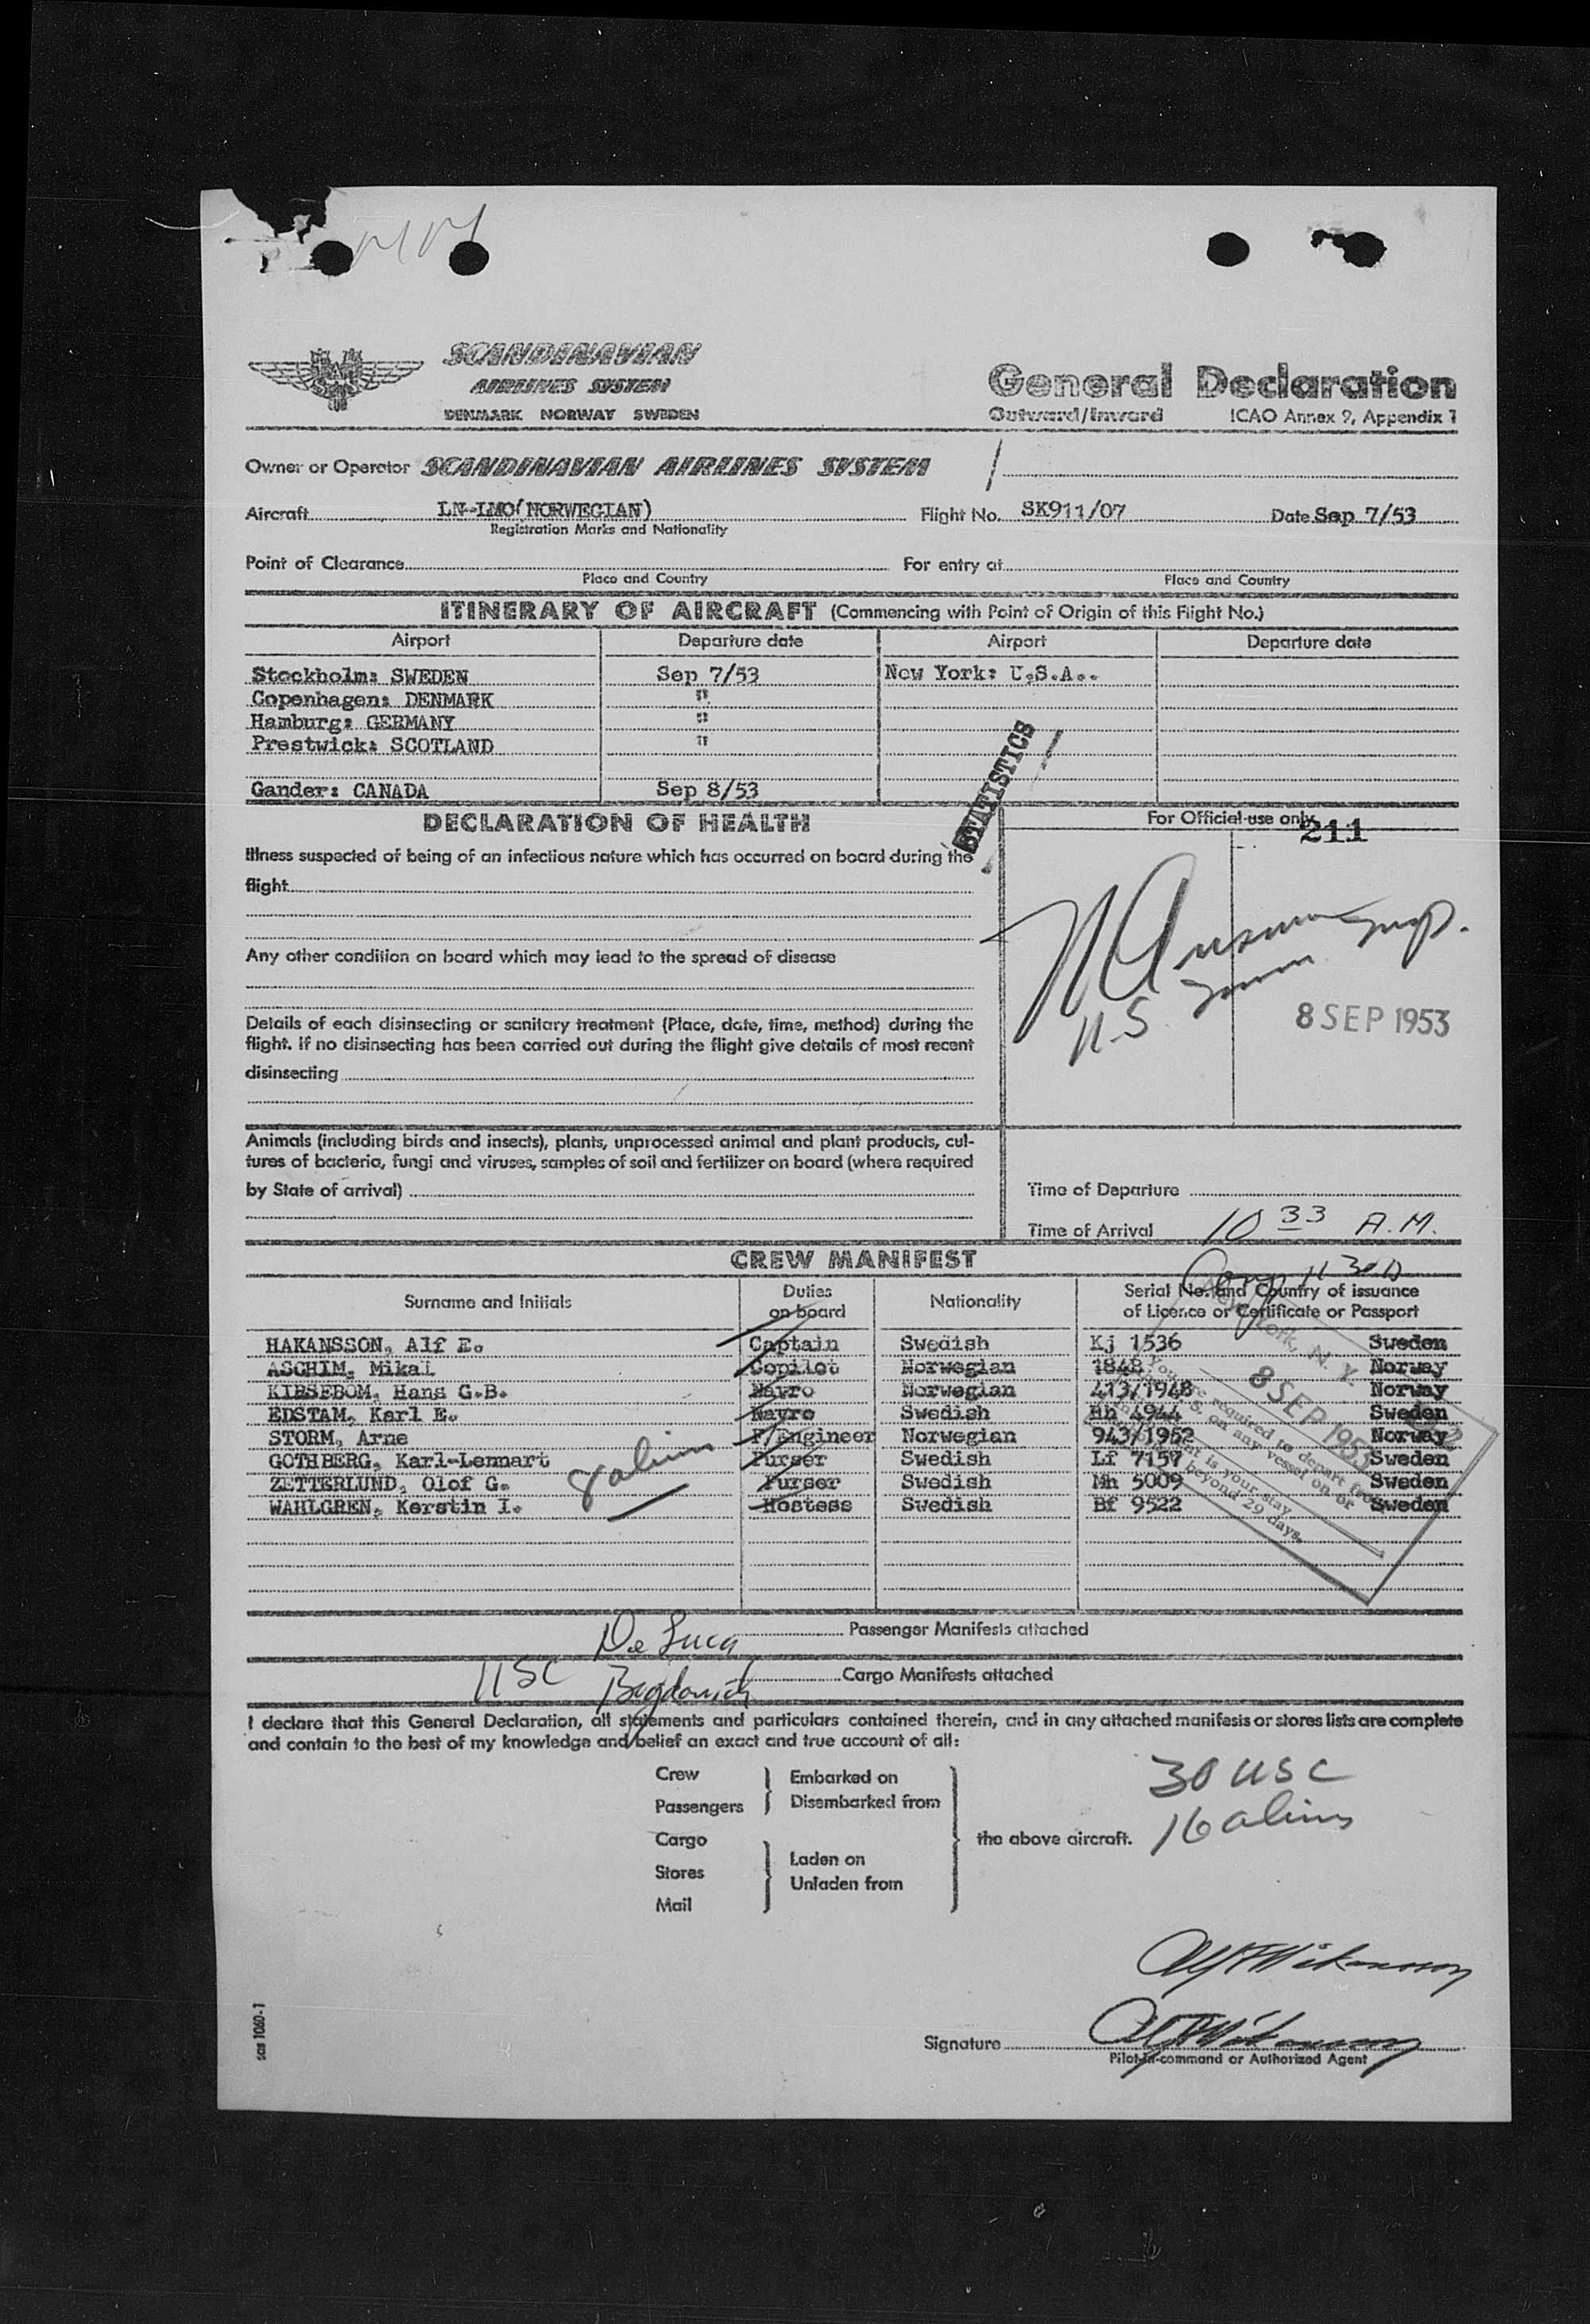 SCANDINAVIAN
AIRLINES SYSTEM
DENMARK NORWAY SWEDEN
General Declaration
Outward/Inward ICAO Annex 9, Appendix 1
Owner or Operator SCANDINAVIAN AIRLINES SYSTEM
Aircraft LN-LMO(NORWEGIAN) Flight No. SK911/07 Date Sep 7/53
Registration Marks and Nationality
Point of Clearance For entry at
Place and Country Place and Country
ITINERARY OF AIRCRAFT (Commencing with Point of Origin of this Flight No.)
Airport Departure date Airport Departure date
Stockholm: SWEDEN Sep 7/53 New York: U.S.A..
Copenhagen: DENMARK "
Hamburg: GERMANY "
Prestwick: SCOTLAND "
Gander: CANADA Sep 8/53
STATISTICS
DECLARATION OF HEALTH
For Official use only
211
Illness suspected of being of an infectious nature which has occurred on board during the
flight
Any other condition on board which may lead to the spread of disease
8 SEP 1953
Details of each disinsecting or sanitary treatment (Place, date, time, method) during the
flight. If no disinsecting has been carried out during the flight give details of most recent
disinsecting
Animals (including birds and insects), plants, unprocessed animal and plant products, cul-
tures of bacteria, fungi and viruses, samples of soil and fertilizer on board (where required
by State of arrival)
Time of Departure
Time of Arrival 10 33 A.M.
CREW MANIFEST
Surname and Initials Duties on board Nationality Serial No. and Country of issuance of Licence or Certificate or Passport
HAKANSSON, Alf E. Captain Swedish Kj 1536 Sweden
ASCHIM, Mikal Copilot Norwegian 1848 Norway
KIBSEBOM, Hans G.B. Navro Norwegian 413/1948 Norway
EDSTAM, Karl E. Navro Swedish Bh 4944 Sweden
STORM, Arne F/Engineer Norwegian 943/1952 Norway
GOTHBERG, Karl-Lennart Purser Swedish Lf 7157 Sweden
ZETTERLUND, Olof G. Purser Swedish Mh 5009 Sweden
WAHLGREN, Kerstin I. Hostess Swedish Bf 9522 Sweden
8 aliens
New York, N. Y.
8 SEP 1953
You are required to depart from
U. S. on any vessel on or
is your stay
beyond 29 days.
De Luca Passenger Manifests attached
USC Bogdanich Cargo Manifests attached
I declare that this General Declaration, all statements and particulars contained therein, and in any attached manifests or stores lists are complete
and contain to the best of my knowledge and belief an exact and true account of all:
Crew
Passengers
Embarked on
Disembarked from
Cargo
Stores
Mail
Laden on
Unladen from
the above aircraft.
30 USC
16 aliens
Signature
Pilot-in-command or Authorized Agent
sas 1060-1